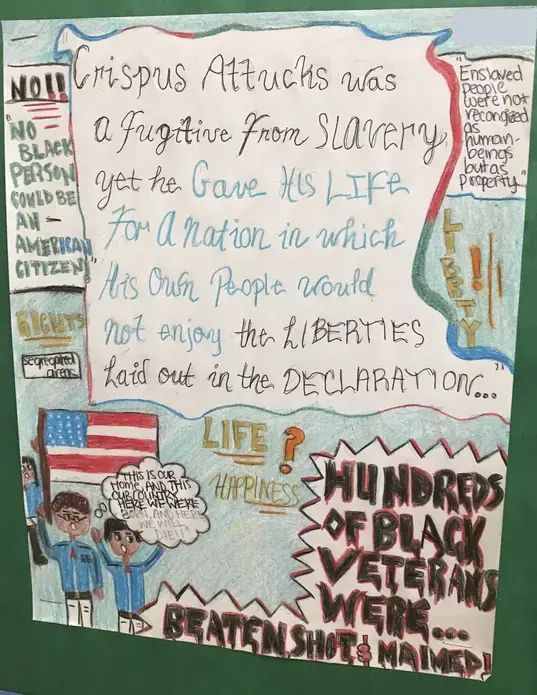 NO!!
"NO
BLACK
PERSON
COULD BE
AN -
AMERICAN
CITIZEN"
RIGHTS
segregated
areas
Crispus Attucks was
a fugitive From Slavery,
yet he Gave His LIFE
For A Nation in which
His Own People would
not enjoy the LIBERTIES
Laid out in the DECLARATION..."
"Enslaved
people
were not
recongized
as
human-
beings
but as
property."
LIBRTY!
LIFE ?
HAPPINESS
THIS IS OUR
Home, AND THIS
OUR COUNTRY
HERE WE WERE
BORN, AND HERE
WE WILL
DIE!!"
HUNDREDS
OF BLACK
VETERANS
WERE...
BEATEN SHOT & MAIMED!